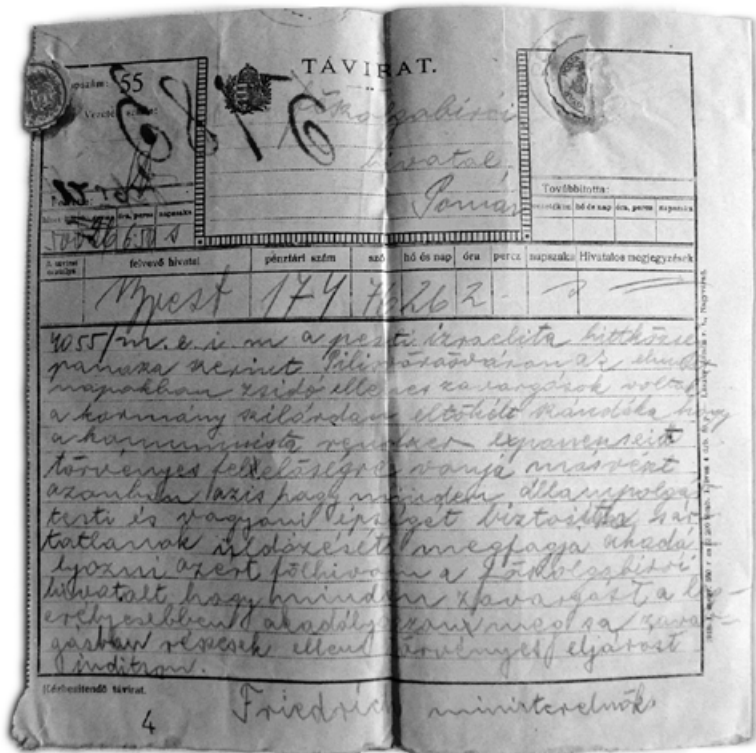 TÁVIRAT.
55
6876
Főszolgabirói
hivatal
Pomáz
Továbbította:
hó és nap óra, percz napszaka
óra, percz napszaka
felvevő hivatal pénztári szám szó hó és nap óra percz napszaka Hivatalos megjegyzések
Bpest 174 76 26 2 -
4055/m. e. i. m a pesti izraelita hittközse
panasza szerint Pilisvörösváron az elmult
napokban zsidó ellenes zavargások voltak
a kormány szilárdan eltökélt szándéka hogy
a kommunista rendszer exponenseit
törvényes felelőségre vonja másrészt
azonban az is hogy minden állampolgár
testi és vagyoni épségét biztositsa s ár-
tatlanok üldözését megfogja akadá-
lyozni azért fölhivom a főszolgabirói
hivatalt hogy minden zavargást a leg-
erélyesebben akadályozzon meg s a zavar-
gásban részesek ellen törvényes eljárást
inditson.
Kézbesítendő távirat.
4
Friedrich miniszterelnök